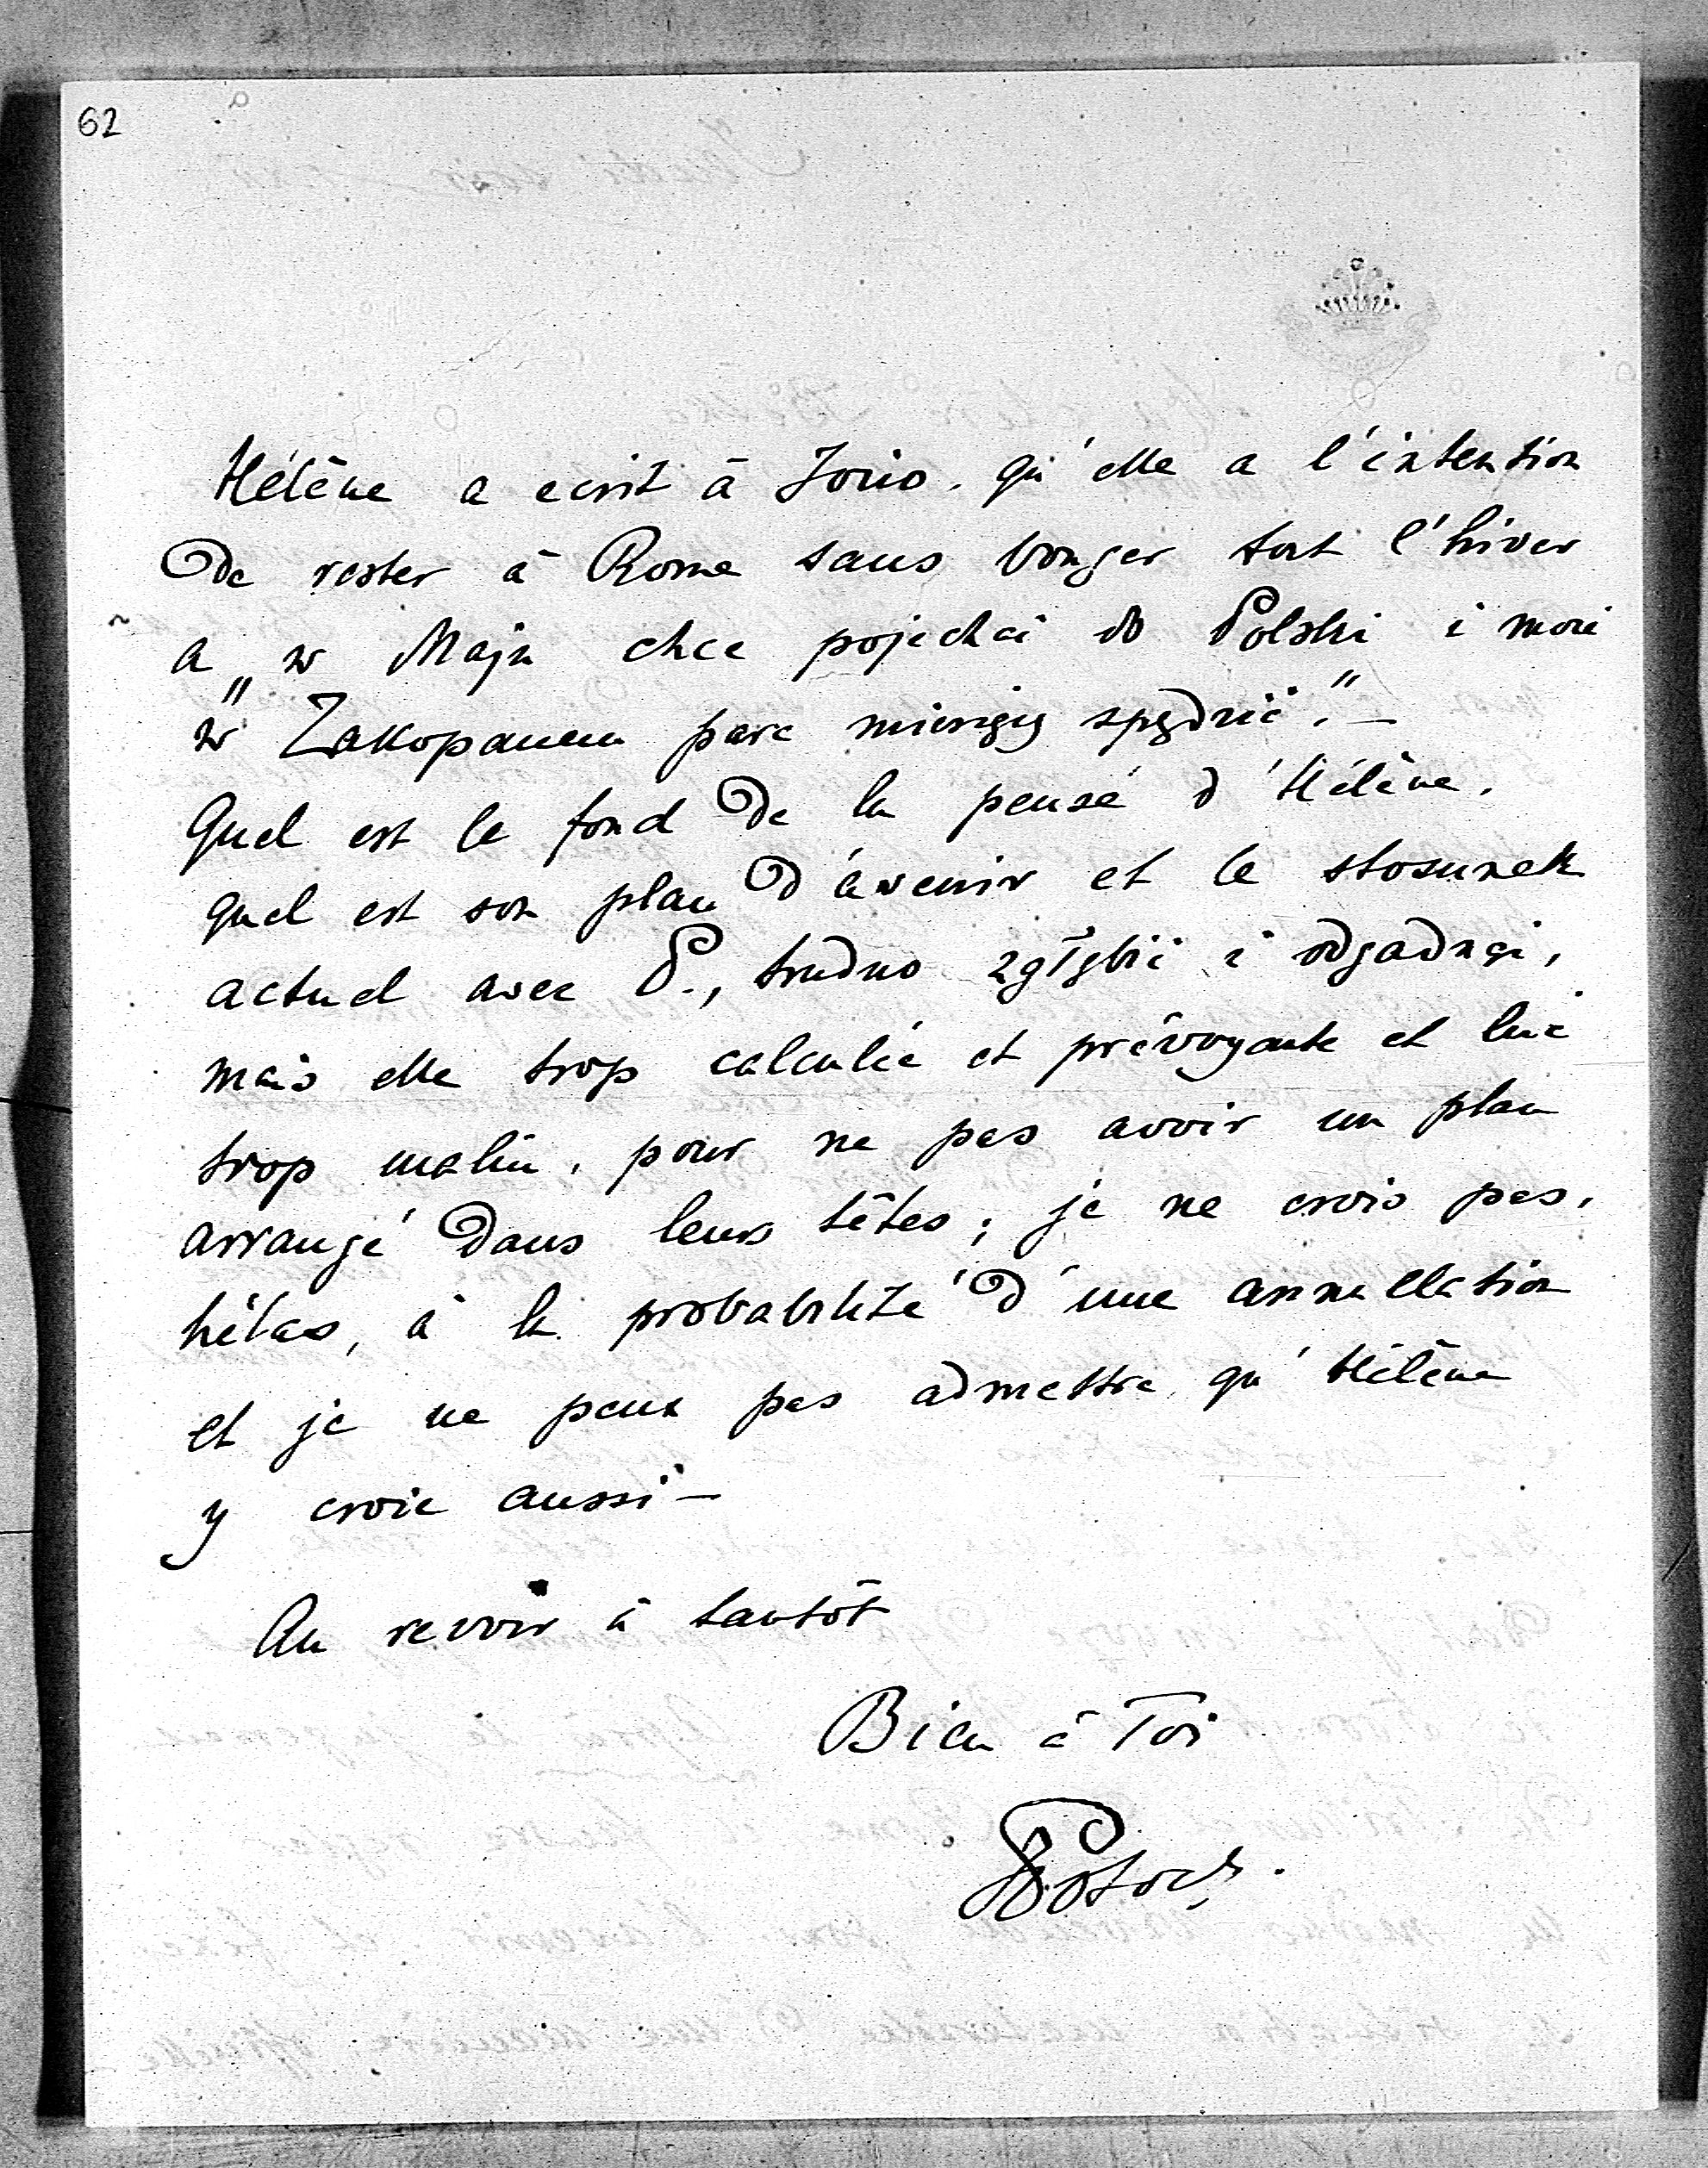 62
Hélène a ecrit à Jozio, qu'elle a l'intention
de rester à Rome sans bouger tout l'hiver
a „w Maju chce pojechać do Polski i może
w Zakopanem parę miesięcy spędzić." —
Quel est le fond de la pensé d'Hélène,
quel est son plan d'avenir et le stosunek
actuel avec P., trudno zgłębić i odgadnąć,
mais elle trop calculée et prévoyante et lui
trop malin, pour ne pas avoir un plan
arrangé dans leurs têtes; je ne crois pas,
hélas, à la probabilité d'une annullation
et je ne peux pas admettre, qu'Hélène
y croie aussi —
Au revoir à tantôt
Bien à Toi